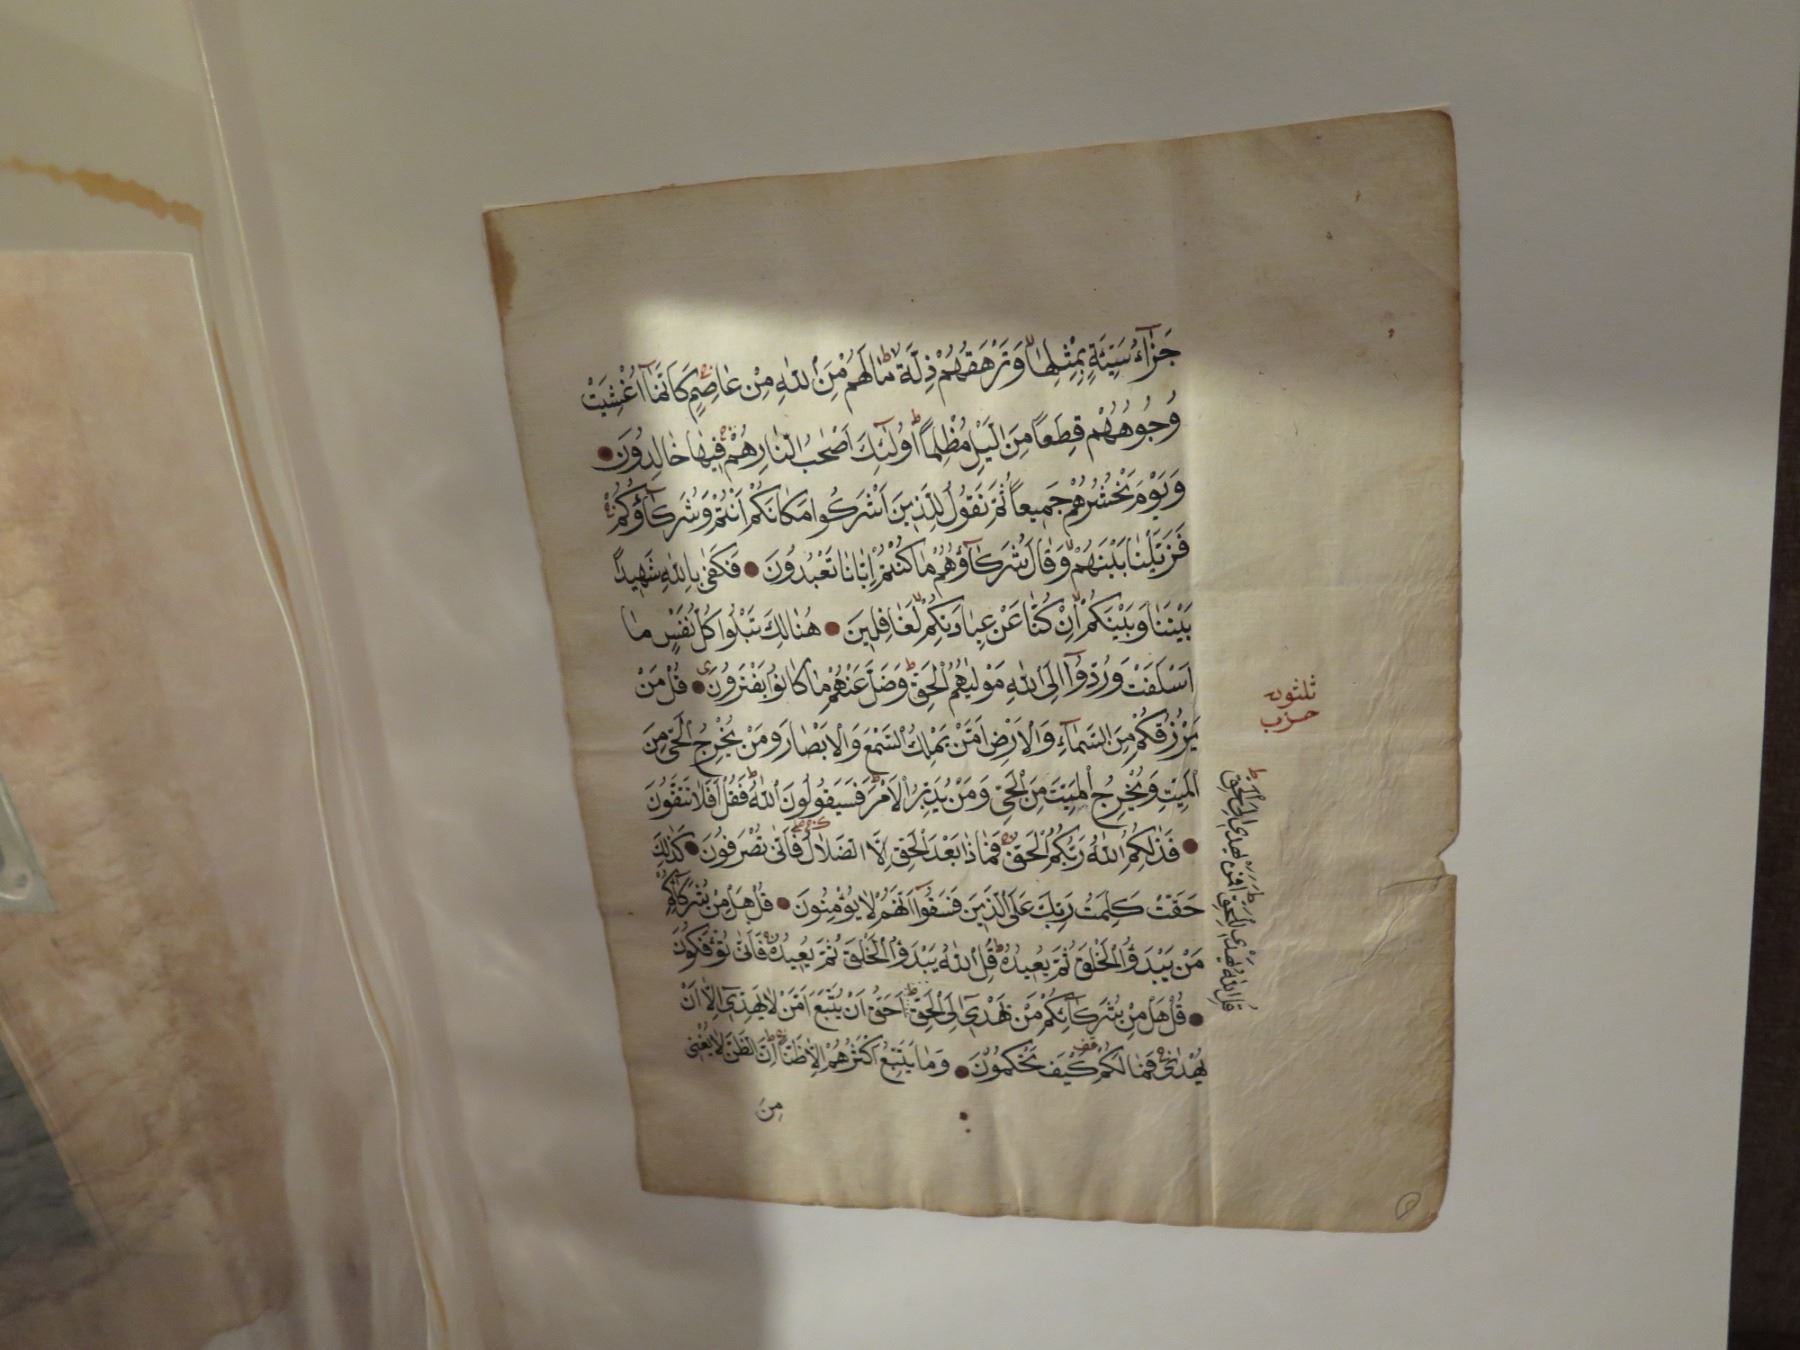 جَزَآءُ سَيِّئَةٍ بِمِثْلِهَا وَتَرْهَقُهُمْ ذِلَّةٌ مَا لَهُمْ مِنَ اللّٰهِ مِنْ عَاصِمٍ كَاَنَّمَآ اُغْشِيَتْ
وُجُوهُهُمْ قِطَعًا مِنَ الَّيْلِ مُظْلِمًا اُولٰٓئِكَ اَصْحَابُ النَّارِ هُمْ فِيهَا خَالِدُونَ
وَيَوْمَ نَحْشُرُهُمْ جَمِيعًا ثُمَّ نَقُولُ لِلَّذِينَ اَشْرَكُوا مَكَانَكُمْ اَنْتُمْ وَشُرَكَآؤُكُمْ
فَزَيَّلْنَا بَيْنَهُمْ وَقَالَ شُرَكَآؤُهُمْ مَا كُنْتُمْ اِيَّانَا تَعْبُدُونَ فَكَفٰى بِاللّٰهِ شَهِيدًا
بَيْنَنَا وَبَيْنَكُمْ اِنْ كُنَّا عَنْ عِبَادَتِكُمْ لَغَافِلِينَ هُنَالِكَ تَبْلُوا كُلُّ نَفْسٍ مَا
اَسْلَفَتْ وَرُدُّوٓا اِلَى اللّٰهِ مَوْلٰيهُمُ الْحَقِّ وَضَلَّ عَنْهُمْ مَا كَانُوا يَفْتَرُونَ قُلْ مَنْ
يَرْزُقُكُمْ مِنَ السَّمَآءِ وَالْاَرْضِ اَمَّنْ يَمْلِكُ السَّمْعَ وَالْاَبْصَارَ وَمَنْ يُخْرِجُ الْحَىَّ مِنَ
الْمَيِّتِ وَيُخْرِجُ الْمَيِّتَ مِنَ الْحَىِّ وَمَنْ يُدَبِّرُ الْاَمْرَ فَسَيَقُولُونَ اللّٰهُ فَقُلْ اَفَلَا تَتَّقُونَ
فَذٰلِكُمُ اللّٰهُ رَبُّكُمُ الْحَقُّ فَمَاذَا بَعْدَ الْحَقِّ اِلَّا الضَّلَالُ فَاَنّٰى تُصْرَفُونَ كَذٰلِكَ
حَقَّتْ كَلِمَتُ رَبِّكَ عَلَى الَّذِينَ فَسَقُوٓا اَنَّهُمْ لَا يُؤْمِنُونَ قُلْ هَلْ مِنْ شُرَكَآئِكُمْ
مَنْ يَبْدَؤُا الْخَلْقَ ثُمَّ يُعِيدُهُ قُلِ اللّٰهُ يَبْدَؤُا الْخَلْقَ ثُمَّ يُعِيدُهُ فَاَنّٰى تُؤْفَكُونَ
قُلْ هَلْ مِنْ شُرَكَآئِكُمْ مَنْ يَهْدِىٓ اِلَى الْحَقِّ اَحَقُّ اَنْ يُتَّبَعَ اَمَّنْ لَا يَهِدِّىٓ اِلَّآ اَنْ
يُهْدٰى فَمَا لَكُمْ كَيْفَ تَحْكُمُونَ وَمَا يَتَّبِعُ اَكْثَرُهُمْ اِلَّا ظَنًّا اِنَّ الظَّنَّ لَا يُغْنِى
مِنَ
حزب
قُلِ اللّٰهُ يَهْدِى لِلْحَقِّ اَفَمَنْ يَهْدِىٓ اِلَى الْحَقِّ